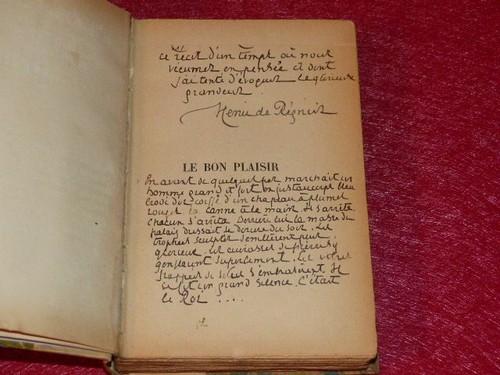 ce récit d'un temps où nous
vécumes en pensée et dont
j'ai tenté d'évoquer la glorieuse
grandeur.
Henri de Régnier
LE BON PLAISIR
En avant de quelques pas marchait un
homme grand et fort en justaucorps bleu
brodé d'or, coiffé d'un chapeau à plumes
rouges, la canne à la main. Il s'arrêta
chacun s'arrêta. Derrière lui la masse du
palais dressait sa dorure du soir. Les
trophées sculptés semblèrent plus
glorieux. Les cuirasses de pierre s'y
gonflaient superbement. Les vitres
frappées du soleil s'embrasèrent. Il
se fit un grand silence. C'était
le Roi ....